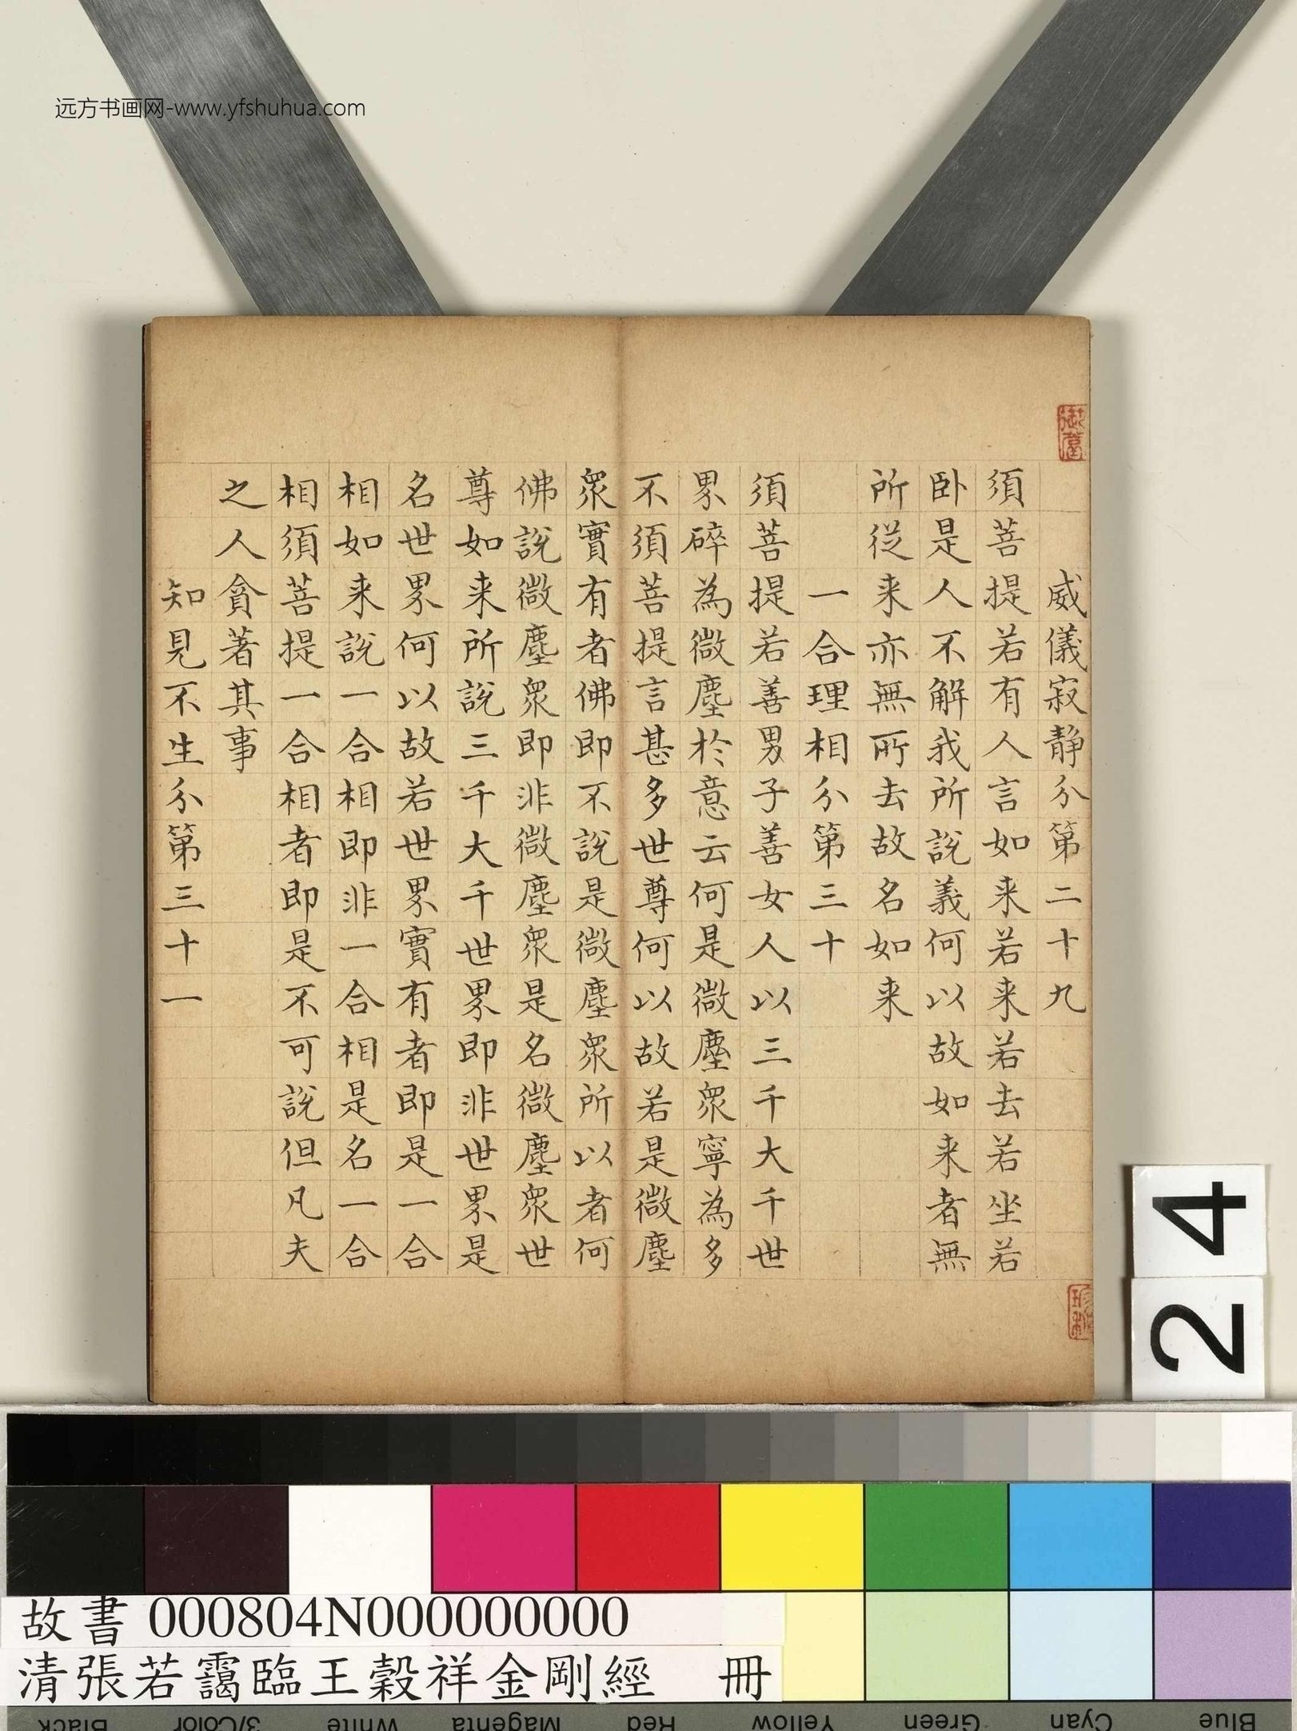 远方书画网-www.yfshuhua.com
威儀寂静分第二十九
須菩提若有人言如来若来若去若坐若
卧是人不解我所說義何以故如来者無
所從来亦無所去故名如来
一合理相分第三十
須菩提若善男子善女人以三千大千世
界碎為微塵於意云何是微塵衆寧為多
不須菩提言甚多世尊何以故若是微塵
衆實有者佛即不說是微塵衆所以者何
佛說微塵衆即非微塵衆是名微塵衆世
尊如来所說三千大千世界即非世界是
名世界何以故若世界實有者即是一合
相如来說一合相即非一合相是名一合
相須菩提一合相者即是不可說但凡夫
之人貪著其事
知見不生分第三十一
24
故書 000804N000000000
清張若靄臨王穀祥金剛經 冊
Black 3/Color White Magenta Red Yellow Green Cyan Blue